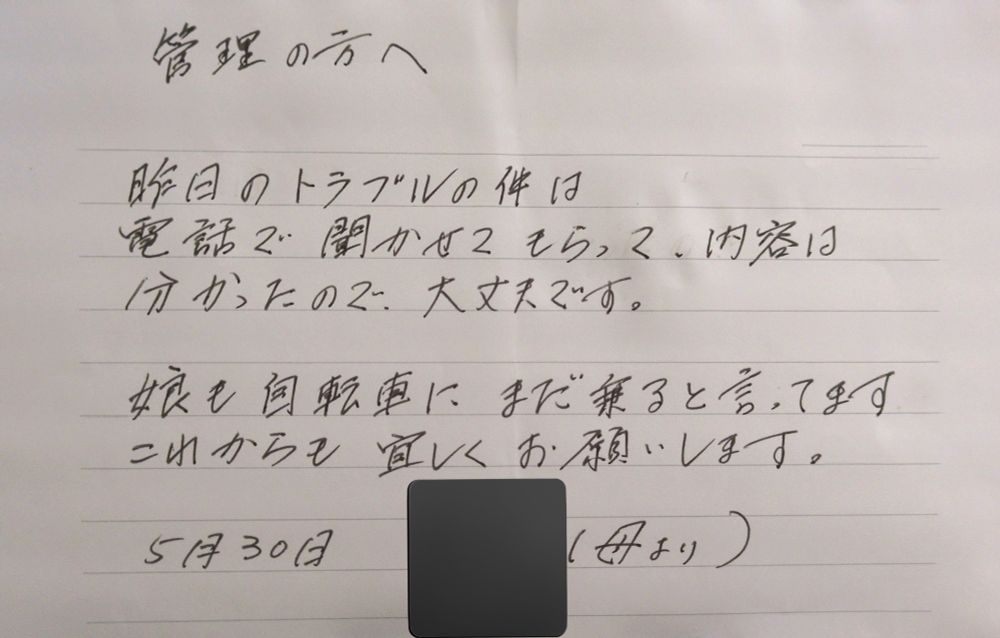 管理の方へ
昨日のトラブルの件は
電話で聞かせてもらって、内容は
分かったので、大丈夫です。
娘も自転車にまだ乗ると言ってます
これからも宜しくお願いします。
5月30日 (母より)